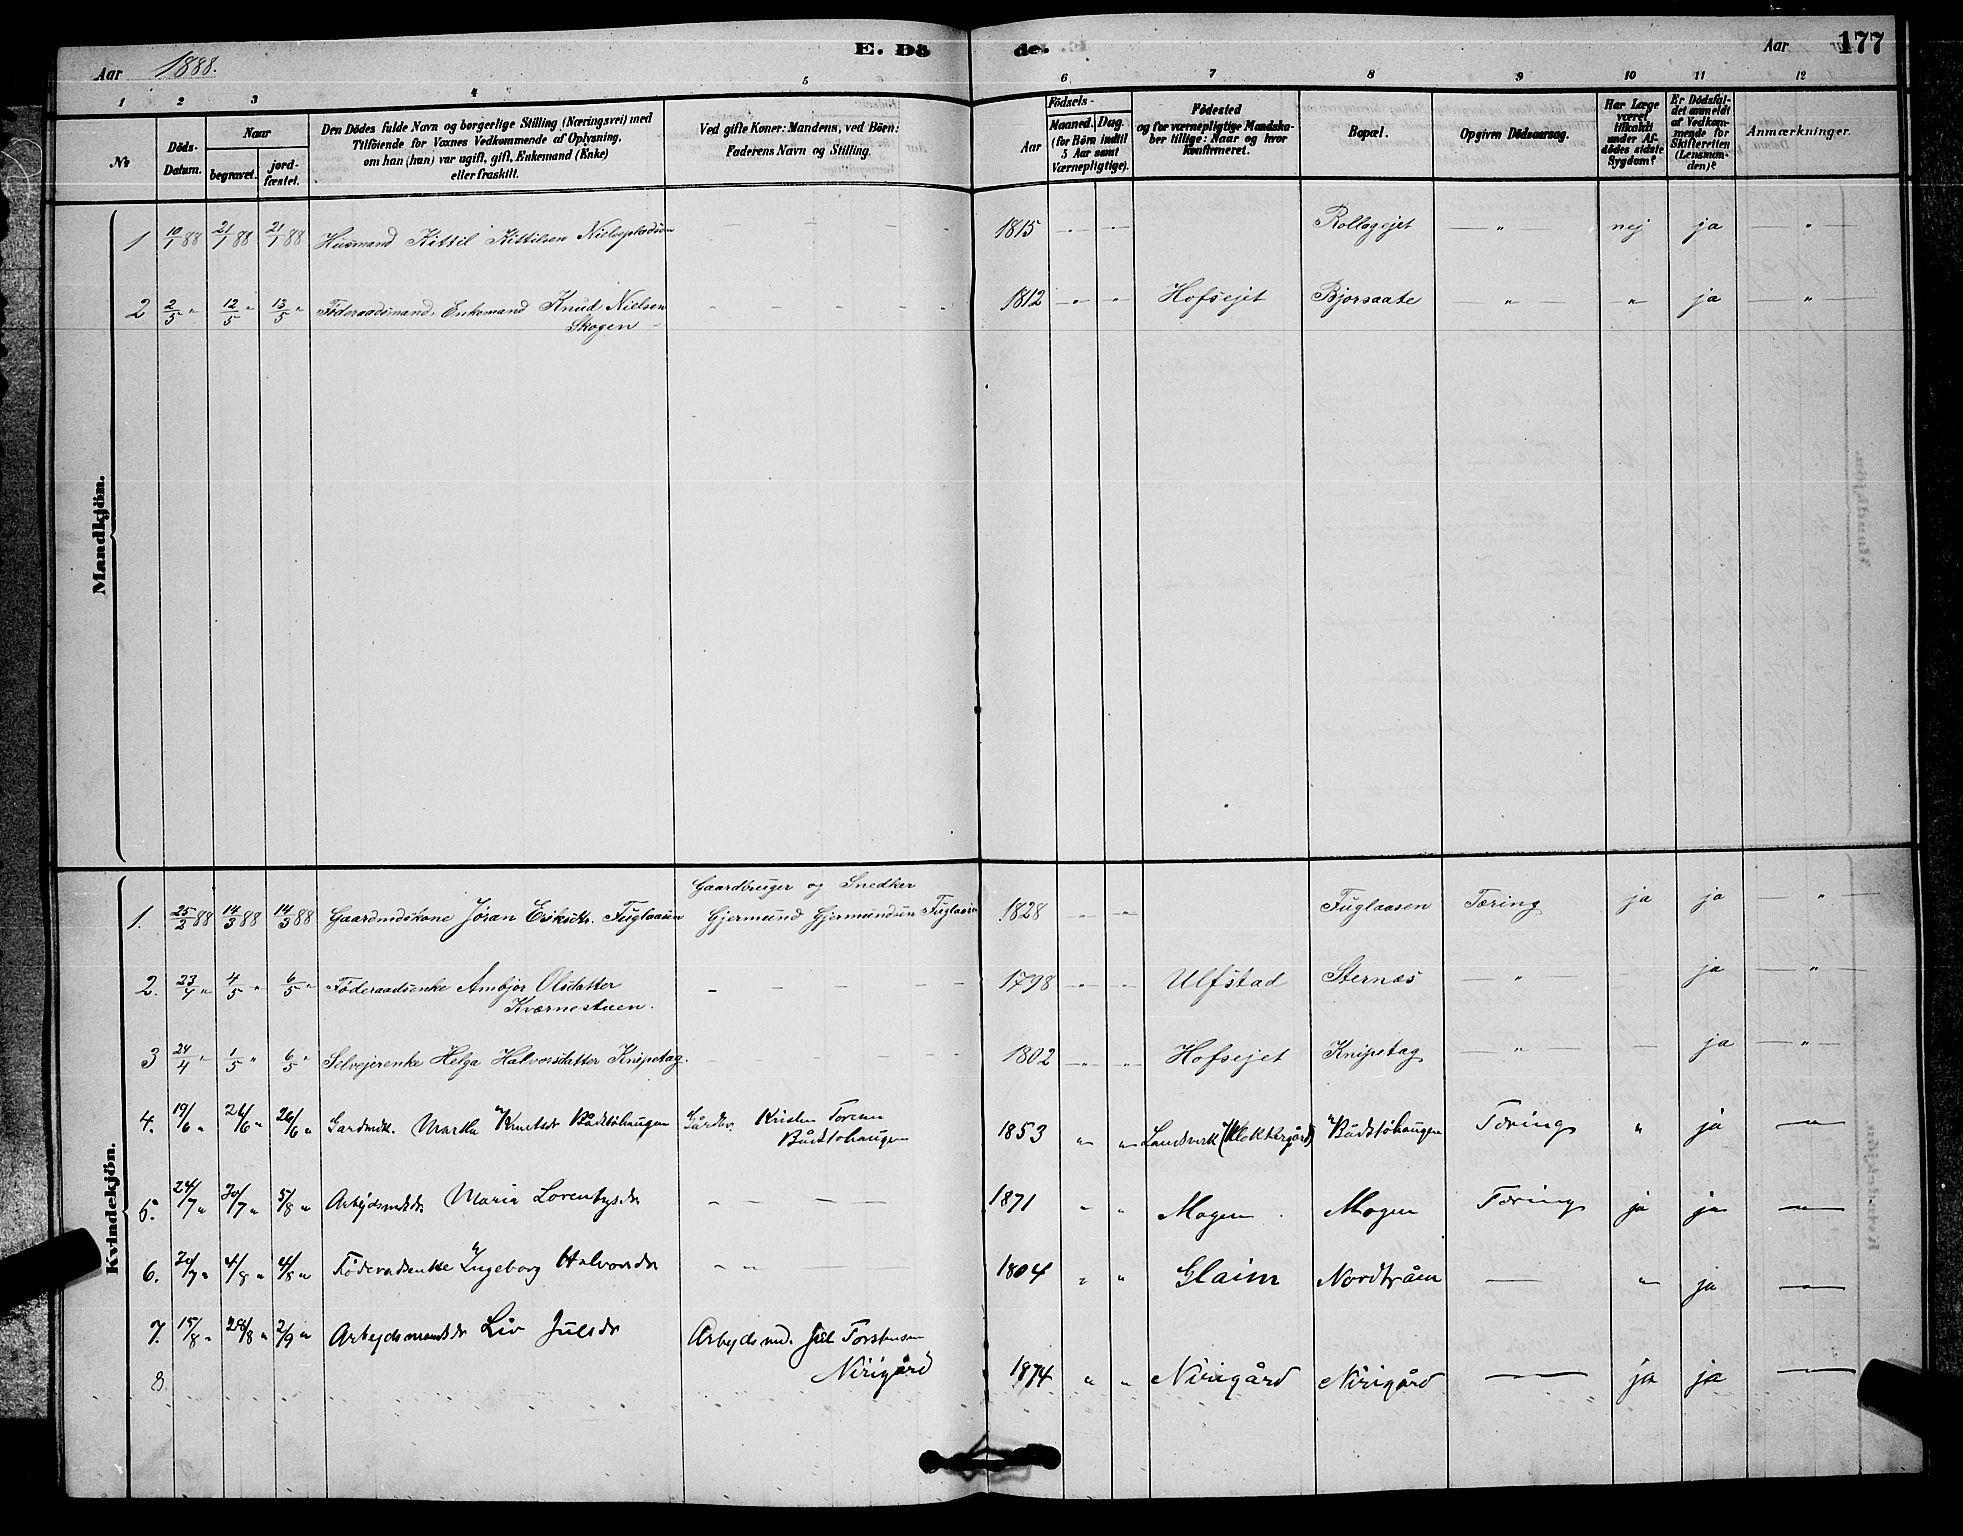 Aar 1888.
E. Dö
de.
Aar 177
1 2 3 4 5 6 7 8 9 10 11 12
No
Döds-Datum.
Naar
begravet.
jord-fæstet.
Den Dödes fulde Navn og borgerlige Stilling (Næringsvei) med
Tilföiende for Voxnes Vedkommende af Oplysning,
om han (hun) var ugift, gift, Enkemand (Enke)
eller fraskilt.
Ved gifte Koner: Mandens, ved Börn:
Faderens Navn og Stilling.
Födsels-
Aar
Maaned. Dag.
(for Börn indtil
5 Aar samt
Værnepligtige).
Födested
og for værnepligtige Mandska-
ber tillige: Naar og hvor
konfirmeret.
Bopæl.
Opgiven Dödsaarsag.
Har Læge
været
tilkaldt
under Af-
dödes sidste
Sygdom?
Er Dödsfal-
det anmeldt
af Vedkom-
mende for
Skifteretten
(Lensman-
den)?
Anmærkninger.
Mandkjön.
1 10/1 88 21/1 88 21/1 88 Husmand Kittil Kittilsen Nielsepladsen — — — 1815 - " - - " - Rollagejet — " — nej ja — " —
2 2/5 " 12/5 " 13/5 " Föderaadsmand, Enkemand Knud Nielsen - - - - 1812 - " - " Hofsejet Bjorsaate " — — " — ja "
Skogen -
Kvindekjön.
Gaardbruger og Snedker
1. 25/2 88 14/3 88 14/3 88 Gaardmdskone Jöran Eriksdtr. Fuglaasen Gjermund Gjermundsen Fuglaasen 1828 - " - " - Fuglaasen Tæring ja ja — " —
2. 23/4 " 4/5 " 6/5 " Föderaadsenke Ambjör Olsdatter - - - - 1798 - " - " - Ulfstad Sternæs — " — ja — " —
Kværnestuen.
3 24/4 " 1/5 " 6/5 " Selvejerenke Helga Halvorsdatter Knipetag. - - - 1802 - " - " - Hofsejet Knipetag — " — — ja — " —
4. 19/6 " 26/6 " 26/6 " Gardmdk. Martha Knutsdr Bådstöhaugen Gårdbr. Kristen Toresen 1853 " " Landsverk (Klokkergård) Bådstöhaugen Tæring " ja "
Bådstöhaugen
5. 24/7 " 30/7 " 5/8 " Arbejdsmdsdr Maria Lorentysdr - - — 1871 " " Mogen Mogen Tæring ja ja "
6. 30/7 " 4/8 " 4/8 " Föderadsenke Ingeborg Halvorsdr - " - — 1804 " " Glaim Nordtråen — " ja —
7. 15/8 " 28/8 " 2/9 " Arbejdsmandsdr Liv Julsdr Arbejdsmd. Jul Torstensen
8 Nirigård 1874 " " Nirigård Nirigård — ja ja —